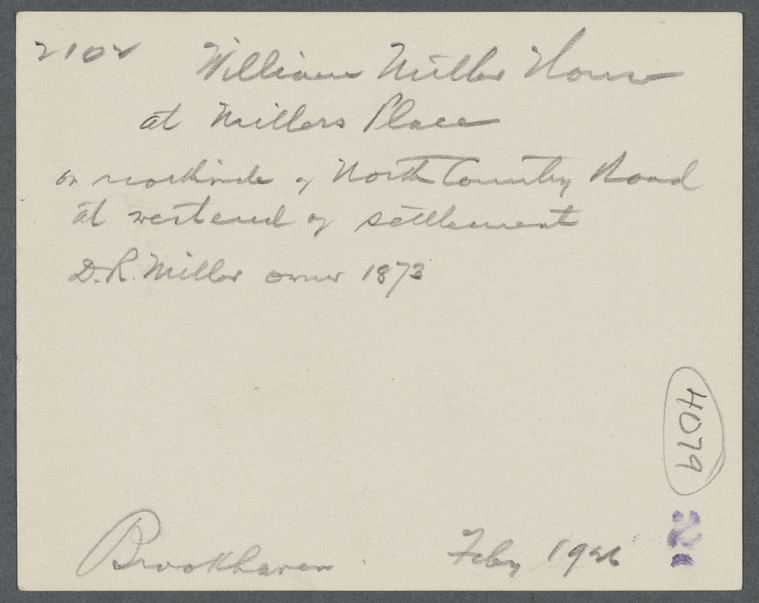 2102 William Miller House
at Millers Place
on northside of North Country Road
at west end of settlement
D.R. Miller owner 1873
4079
Brookhaven Feby